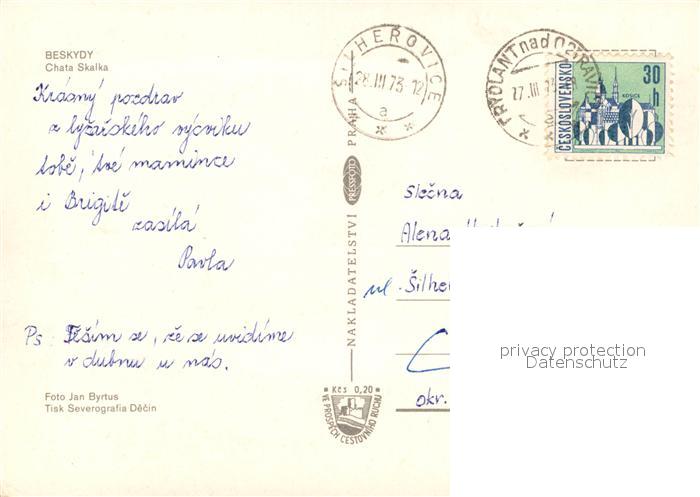 BESKYDY
Chata Skalka
Krásný pozdrav
z lyžařského výcviku
tobě, tvé mamince
i Brigitě
zasílá
Pavla
Ps: Těším se, že se uvidíme
v dubnu u nás.
Foto Jan Byrtus
Tisk Severografia Děčín
NAKLADATELSTVÍ PRESSFOTO PRAHA
Kčs 0,20
VE PROSPĚCH CESTOVNÍHO RUCHU
ŠILHEŘOVICE
28.III 73 12
a
FRÝDLANT nad OSTRAVICÍ
27.III 73
ČESKOSLOVENSKO
30 h
KOŠICE
Slečna
Alena
ul. Šilhe
okr.
privacy protection
Datenschutz